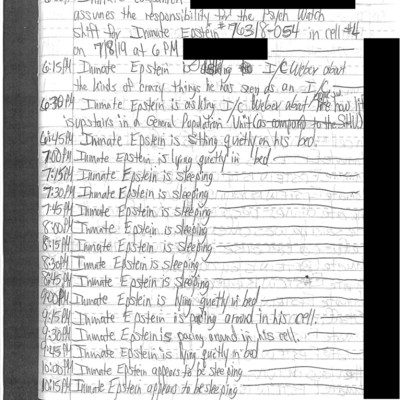 assumes the responsibility for the Psych Watch
shift for Inmate Epstein # 76318-054 in cell #4
on 7/8/19 at 6 PM
6:15 PM Inmate Epstein is asking I/C Weber about
the kinds of crazy things he has seen as an I/C
6:30 PM Inmate Epstein is asking I/C Weber about how it
is upstairs in a General Population Unit (as compared to the SHU)
6:45 PM Inmate Epstein is sitting quietly on his bed.
7:00 PM Inmate Epstein is lying quietly in bed
7:15 PM Inmate Epstein is sleeping
7:30 PM Inmate Epstein is sleeping
7:45 PM Inmate Epstein is sleeping
8:00 PM Inmate Epstein is sleeping
8:15 PM Inmate Epstein is sleeping
8:30 PM Inmate Epstein is sleeping
8:45 PM Inmate Epstein is sleeping
9:00 PM Inmate Epstein is lying quietly in bed
9:15 PM Inmate Epstein is pacing around in his cell.
9:30 PM Inmate Epstein is pacing around in his cell.
9:45 PM Inmate Epstein is lying quietly in bed
10:00 PM Inmate Epstein appears to be sleeping
10:15 PM Inmate Epstein appears to be sleeping